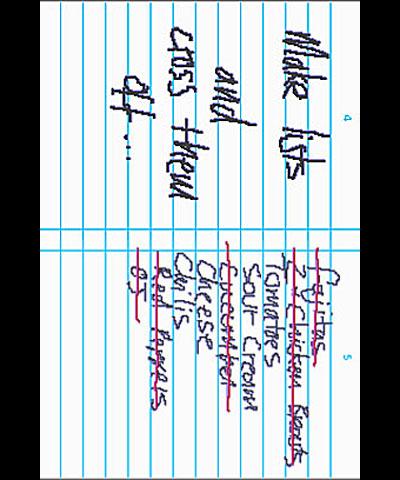 4
Make lists
and
cross them
off...
5
fajitas
2 - Chicken Breasts
Tomatoes
Sour Cream
Cucumber
Cheese
Chilis
Red Peppers
OJ